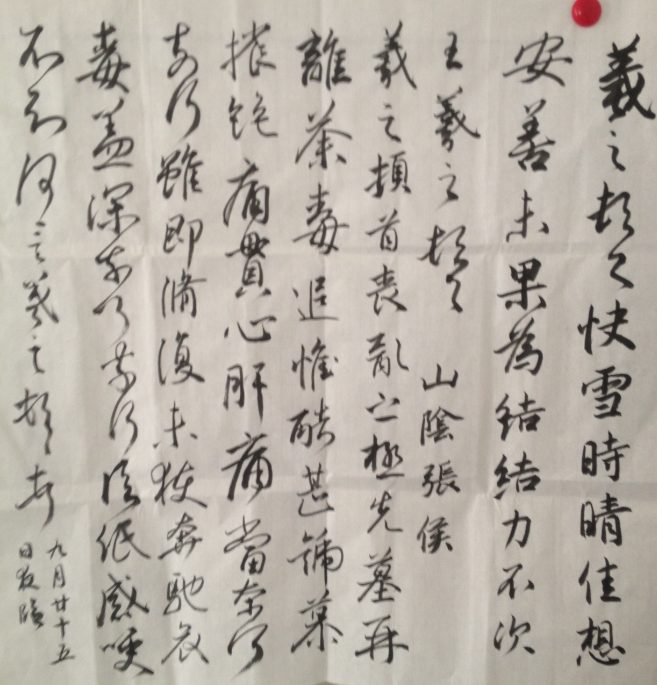 羲之頓首快雪時晴佳想
安善未果為結結力不次
王羲之頓首 山陰張侯
羲之頓首喪亂之極先墓再
離荼毒追惟酷甚號慕
摧絕痛貫心肝痛當奈何
奈何雖即脩復未獲奔馳哀
毒益深奈何奈何臨紙感哽
不知何言羲之頓首頓首
九月廿十五
日夜臨